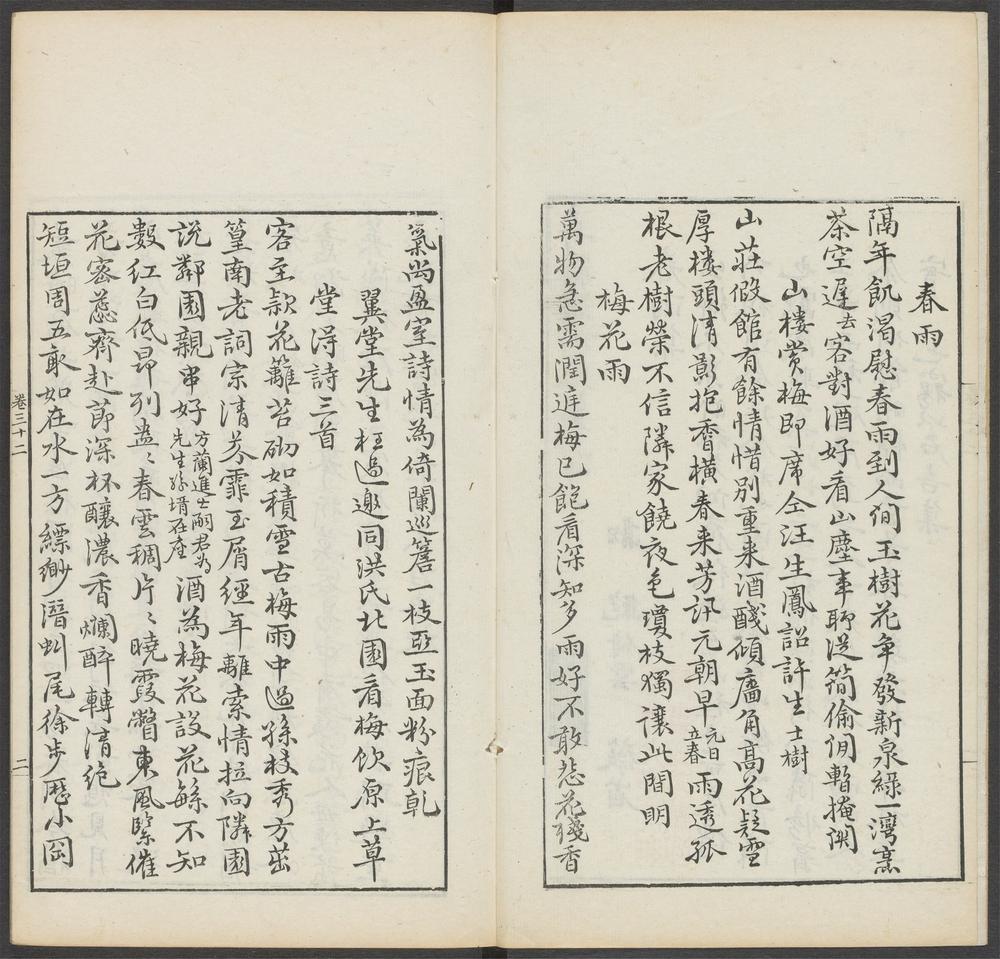 春雨
隔年飢渴慰春雨到人間玉樹花爭發新泉綠一灣烹
茶空遲去客對酒好看山塵事聊送簡偷閒暫掩関
山樓賞梅即席仝汪生鳳詔許生士樹
山莊假館有餘情惜別重来酒醆傾廬角高花疑雪
厚樓頭清影抱香橫春来芳訊元朝早元日立春雨透孤
根老樹榮不信隣家饒夜色瓊枝獨讓此間明
梅花雨
萬物急需潤庭梅已飽看深知多雨好不敢悲花殘香
氣尚盈室詩情為倚闌巡簷一枝亞玉面粉痕乾
翼堂先生枉過邀同洪氏北園看梅飲原上草
堂得詩三首
客至款花籬苔砌如積雪古梅雨中過孫枝秀方茁
篁南老詞宗清芬霏玉屑經年離索情拉向隣園
說鄰園親串好方蘭進士嗣君為先生孫壻在座酒為梅花設花繇不知
數紅白低昂列盎〻春雲稠片〻曉霞瞥東風緊催
花密蕊齊赴節深杯釀濃香爛醉轉清絕
短垣周五畝如在水一方縹緲潛虯尾徐步歷小岡
卷三十二
二